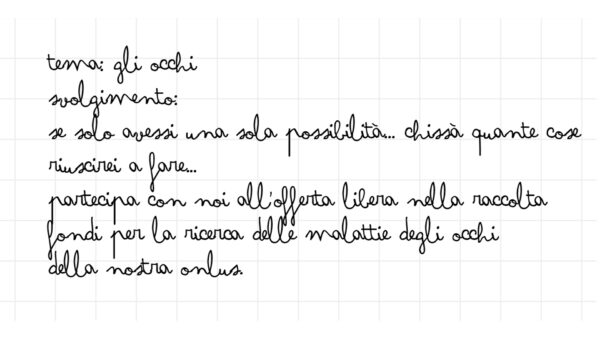 tema: gli occhi
svolgimento:
se solo avessi una sola possibilità... chissà quante cose
riuscirei a fare...
partecipa con noi all'offerta libera nella raccolta
fondi per la ricerca delle malattie degli occhi
della nostra onlus.